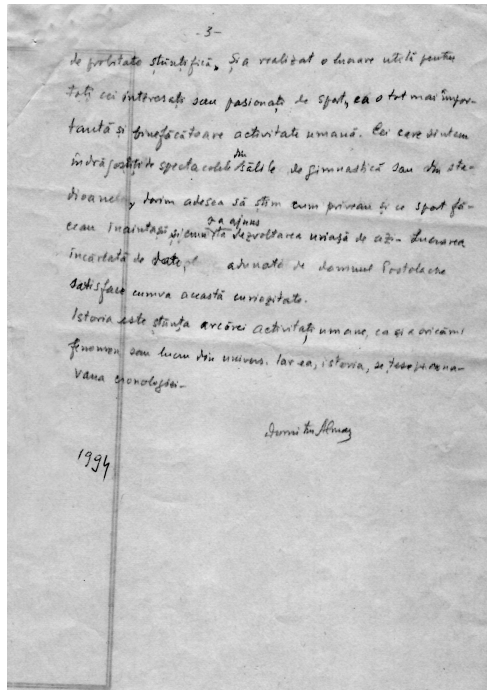 -3-
de probitate științifică. Și a realizat o lucrare utilă pentru
toți cei interesați sau pasionați de sport, ca o tot mai impor-
tantă și binefăcătoare activitate umană. Cei care sîntem
îndrăgostiți de spectacolele din sălile de gimnastică sau din sta-
dioane, dorim adesea să știm cum priveau și ce sport fă-
ceau înaintașii și cum s-a ajuns la dezvoltarea uriașă de azi. Lucrarea
încărcată de date, adunate de domnul Postolache
satisface cumva această curiozitate.
Istoria este știința oricărei activități umane, ca și a oricărui
fenomen sau lucru din univers. Iar ea, istoria, se țese pe cana-
vaua cronologiei.
Dumitru Almaș
1994